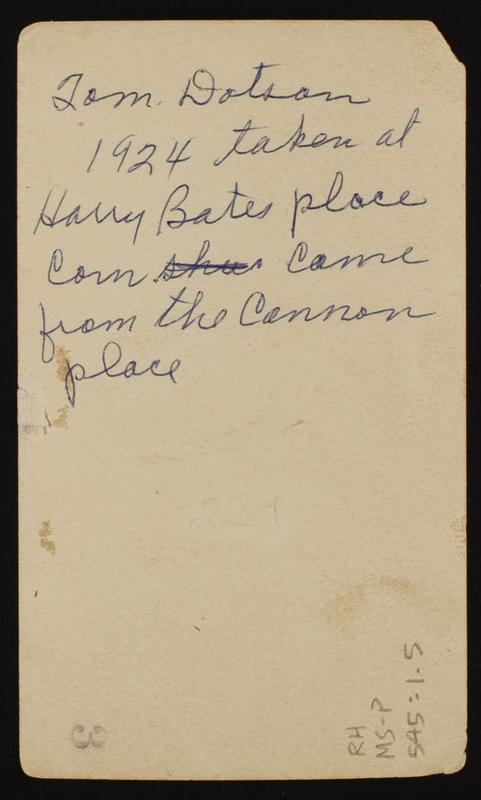 Tom. Dotson
1924 taken at
Harry Bates place
Corn came
from the Cannon
place
224
3
RH
MS-P
545:1.5